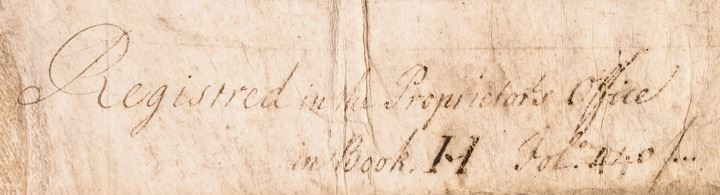 Registred in the Proprietors Office
in Book. H Fol:o 240